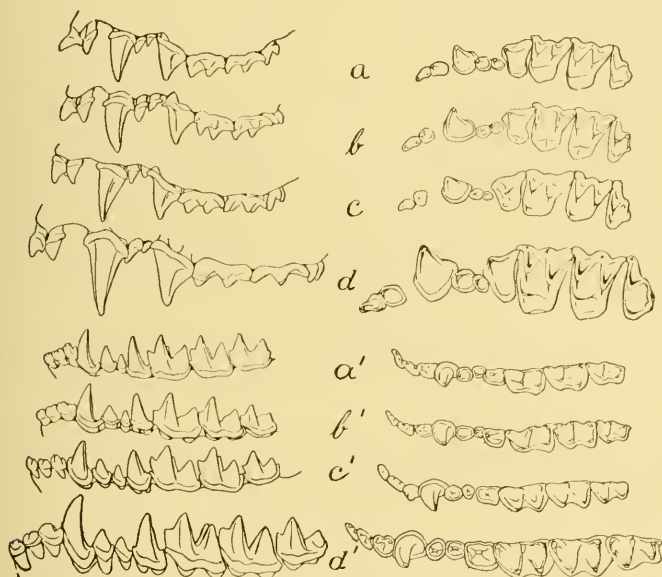 a
b
c
d
a'
b'
c'
d'